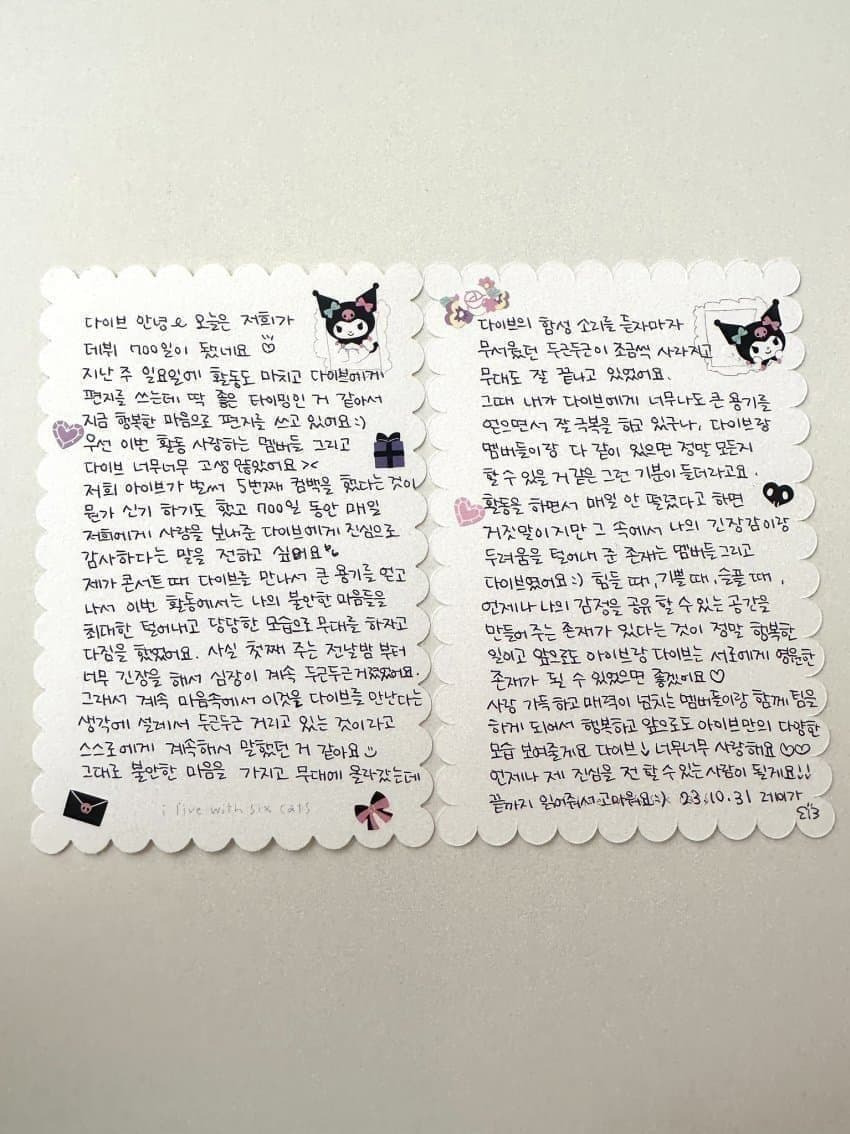 다이브 안녕 오늘은 저희가
데뷔 700일이 됐네요
지난 주 일요일에 활동도 마치고 다이브에게
편지를 쓰는데 딱 좋은 타이밍인 거 같아서
지금 행복한 마음으로 편지를 쓰고 있어요:)
우선 이번 활동 사랑하는 멤버들 그리고
다이브 너무너무 고생 많았어요 ><
저희 아이브가 벌써 5번째 컴백을 했다는 것이
뭔가 신기 하기도 했고 700일 동안 매일
저희에게 사랑을 보내준 다이브에게 진심으로
감사하다는 말을 전하고 싶어요
제가 콘서트 때 다이브를 만나서 큰 용기를 얻고
나서 이번 활동에서는 나의 불안한 마음들을
최대한 털어내고 당당한 모습으로 무대를 하자고
다짐을 했었어요. 사실 첫째 주는 전날밤 부터
너무 긴장을 해서 심장이 계속 두근두근거렸었어요.
그래서 계속 마음속에서 이것을 다이브를 만난다는
생각에 설레서 두근두근 거리고 있는 것이라고
스스로에게 계속해서 말했던 거 같아요
그대로 불안한 마음을 가지고 무대에 올라갔는데
i live with six cats
다이브의 함성 소리를 듣자마자
무서웠던 두근두근이 조금씩 사라지고
무대도 잘 끝나고 있었어요.
그때 내가 다이브에게 너무나도 큰 용기를
얻으면서 잘 극복을 하고 있구나, 다이브랑
멤버들이랑 다 같이 있으면 정말 모든지
할 수 있을 거 같은 그런 기분이 들더라고요.
활동을 하면서 매일 안 떨렸다고 하면
거짓말이지만 그 속에서 나의 긴장감이랑
두려움을 털어내 준 존재는 멤버들 그리고
다이브였어요:) 힘들 때, 기쁠 때, 슬플 때,
언제나 나의 감정을 공유 할 수 있는 공간을
만들어 주는 존재가 있다는 것이 정말 행복한
일이고 앞으로도 아이브랑 다이브는 서로에게 영원한
존재가 될 수 있었으면 좋겠어요♡
사랑 가득하고 매력이 넘치는 멤버들이랑 함께 팀을
하게 되어서 행복하고 앞으로도 아이브만의 다양한
모습 보여줄게요 다이브 너무너무 사랑해요♡♡
언제나 제 진심을 전 할 수 있는 사람이 될게요!!
끝까지 읽어줘서 고마워요:) 23.10.31 레이가